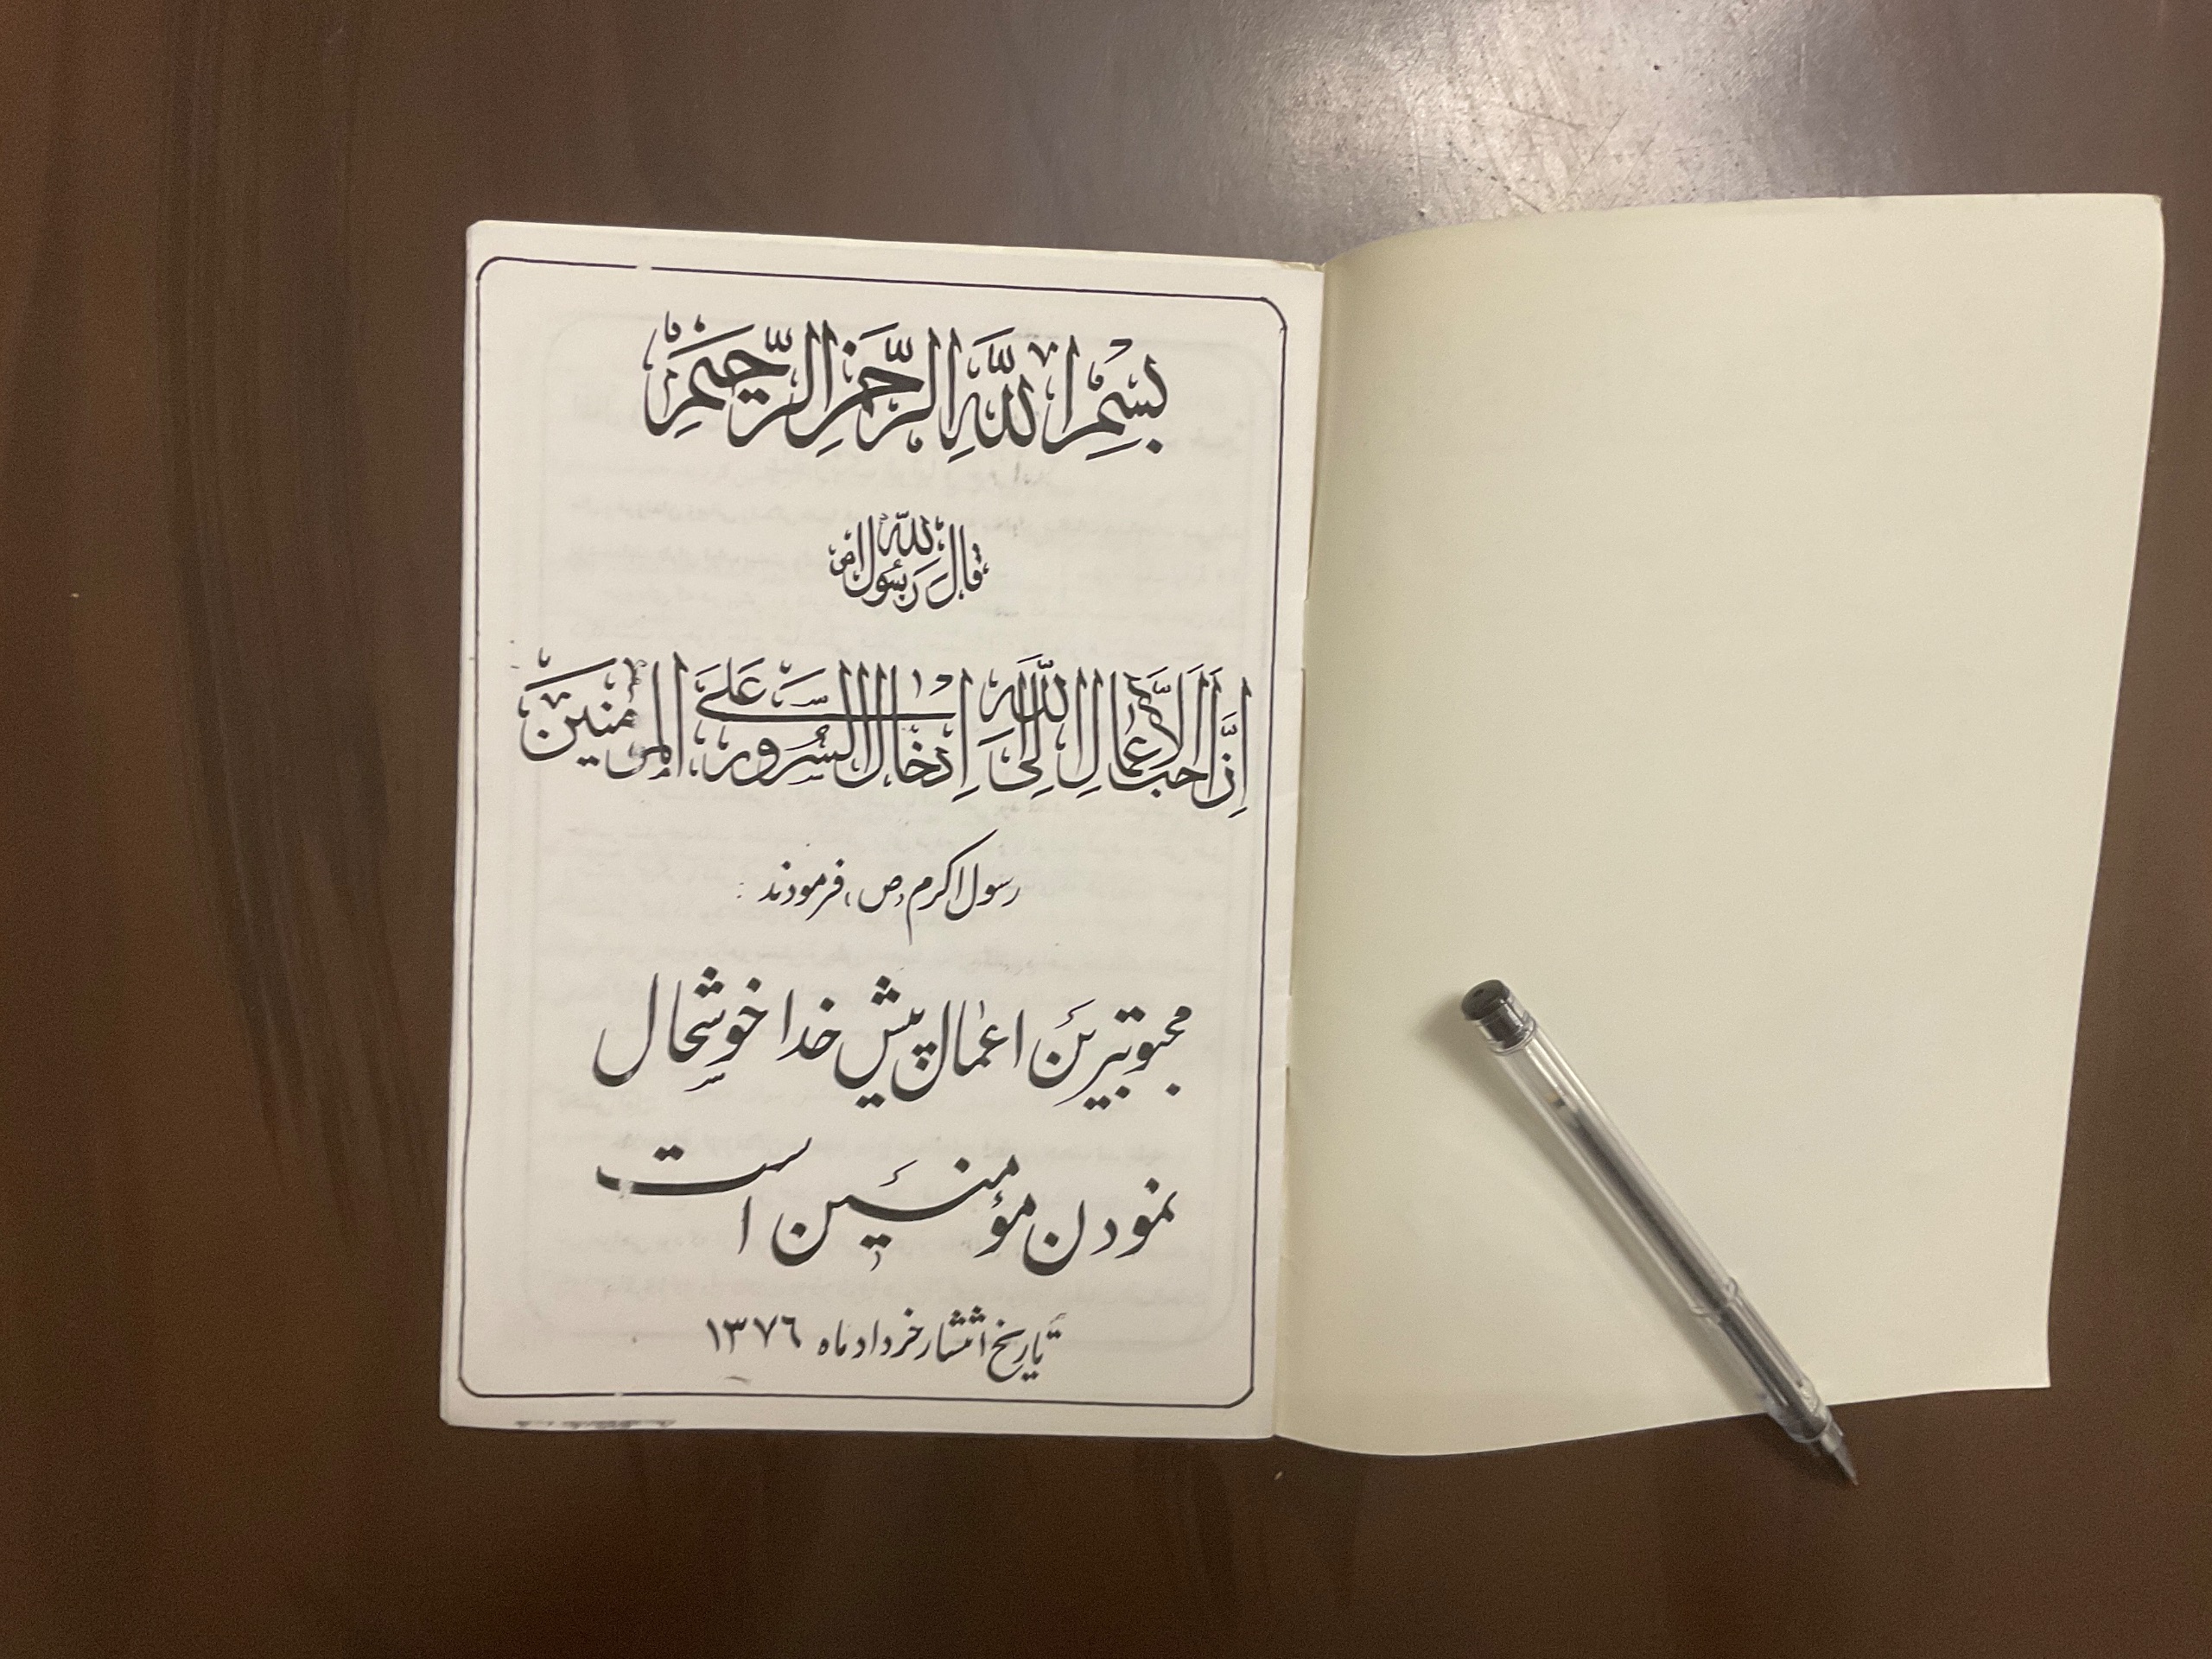 بِسْمِ اللَّهِ الرَّحْمنِ الرَّحِيمِ
قالَ رَسُولُ اللهِ ص
إِنَّ أَحَبَّ الْأَعْمالِ إِلَى اللَّهِ إِدْخالُ السُّرُورِ عَلَى الْمُؤْمِنِينَ
رسول اکرم (ص) فرمودند :
محبوبترین اعمال پیش خدا خوشحال
نمودن مؤمنین است
تاریخ انتشار خرداد ماه ۱۳۷٦